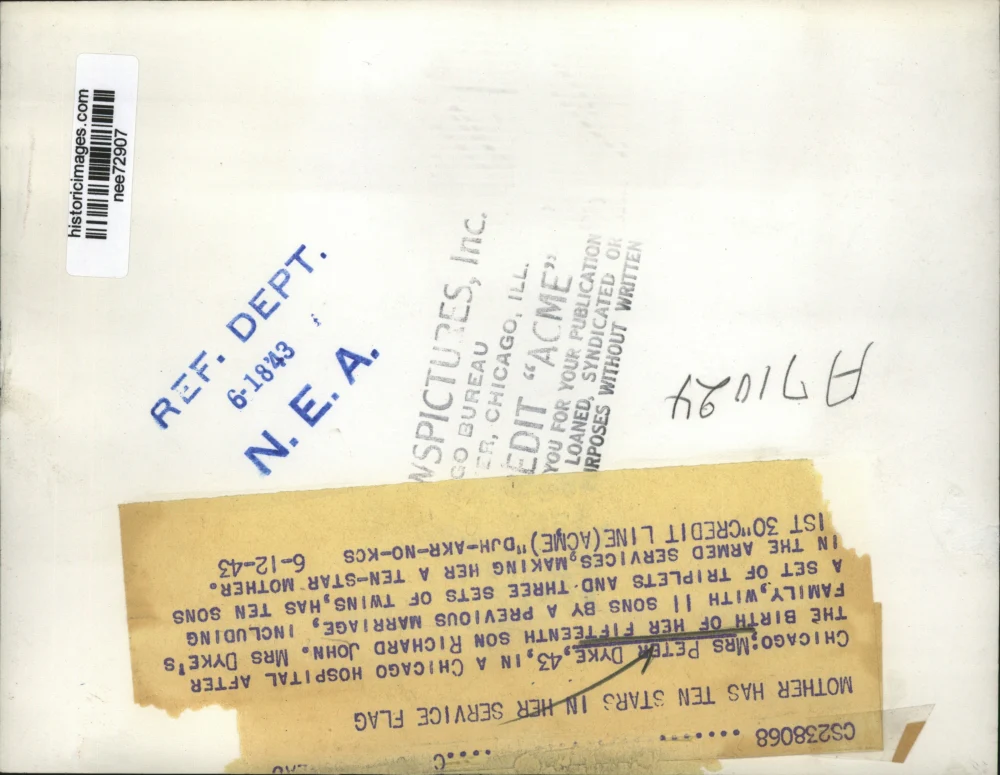 historicimages.com
nee72907
REF. DEPT.
6-18'43
N. E. A.
WSPICTURES, Inc.
GO BUREAU
ER, CHICAGO, ILL.
EDIT "ACME"
YOU FOR YOUR PUBLICATION
LOANED, SYNDICATED OR
RPOSES WITHOUT WRITTEN
A71024
CS238068 .......
MOTHER HAS TEN STARS IN HER SERVICE FLAG
CHICAGO: MRS PETER DYKE, 43, IN A CHICAGO HOSPITAL AFTER
THE BIRTH OF HER FIFTEENTH SON RICHARD JOHN. MRS DYKE'S
FAMILY, WITH 11 SONS BY A PREVIOUS MARRIAGE, INCLUDING
A SET OF TRIPLETS AND THREE SETS OF TWINS, HAS TEN SONS
IN THE ARMED SERVICES, MAKING HER A TEN-STAR MOTHER.
1ST 30"CREDIT LINE(ACME)"DJH-AKR-NO-KCS 6-12-43